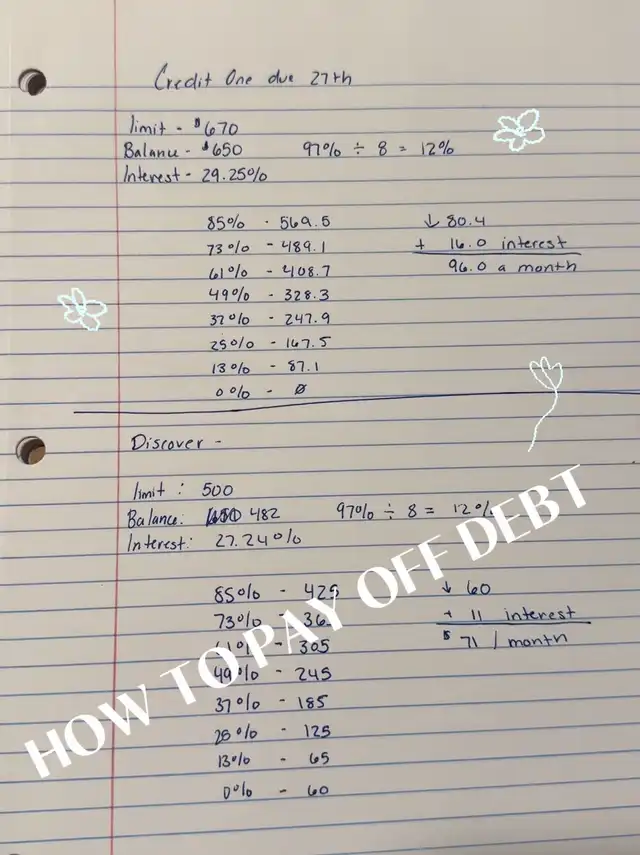 Credit One due 27th
limit - $670
Balance - $650 97% ÷ 8 = 12%
Interest - 29.25%
85% - 569.5 ↓ 80.4
73% - 489.1 + 16.0 interest
61% - 408.7 96.0 a month
49% - 328.3
37% - 247.9
25% - 167.5
13% - 87.1
0% - Ø
Discover -
limit : 500
Balance: 482 97% ÷ 8 = 12%
Interest: 27.24%
85% - 425 ↓ 60
73% - 36 + 11 interest
61% - 305 $ 71 / month
49% - 245
37% - 185
25% - 125
13% - 65
0% - 60
HOW TO PAY OFF DEBT